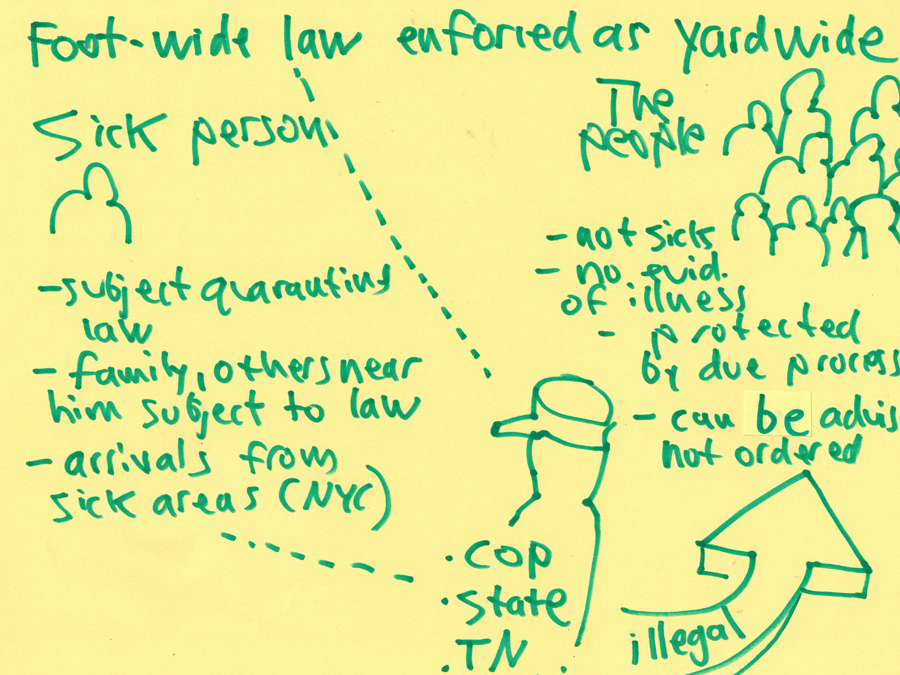 Foot-wide law enforced as yardwide
Sick person
- subject quarantine
law
- family, others near
him subject to law
- arrivals from
sick areas (NYC)
The
people
- not sick
- no evid.
of illness
- protected
by due process
- can be advis
not ordered
• cop
• state
• TN
illegal